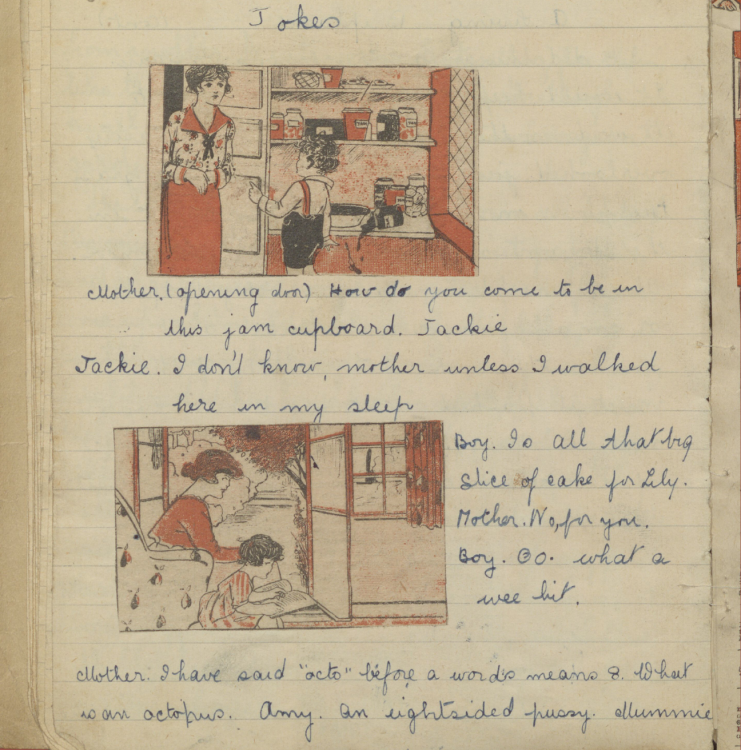 Jokes
Mother. (opening door) How do you come to be in
this jam cupboard. Jackie
Jackie. I don't know, mother unless I walked
here in my sleep
Boy. Is all that big
slice of cake for Lily.
Mother. No, for you.
Boy. OO. what a
wee bit.
Mother. I have said "octo" before a words means 8. What
is an octopus. Amy. An eightsided pussy. Mummie